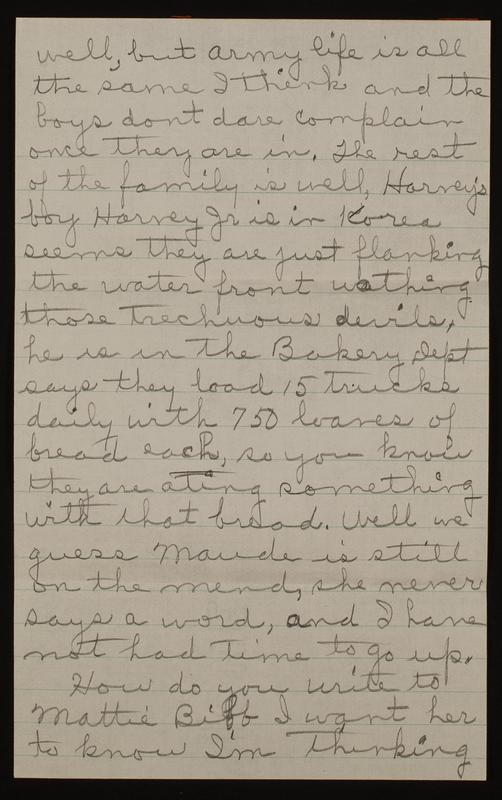 well, but army life is all
the same I think and the
boys dont dare complain
once they are in. The rest
of the family is well, Harvey's
boy Harvey Jr is in Korea
seems they are just flanking
the water front wathing
those Trechuous devils,
he is in The Bakery Dept
says they load 15 trucks
daily with 750 loaves of
bread each, so you know
they are ating something
with that bread. Well we
guess Maude is still
on the mend, she never
says a word, and I have
not had time to go up.
How do you write to
Mattie Bibb I want her
to know I'm Thinking